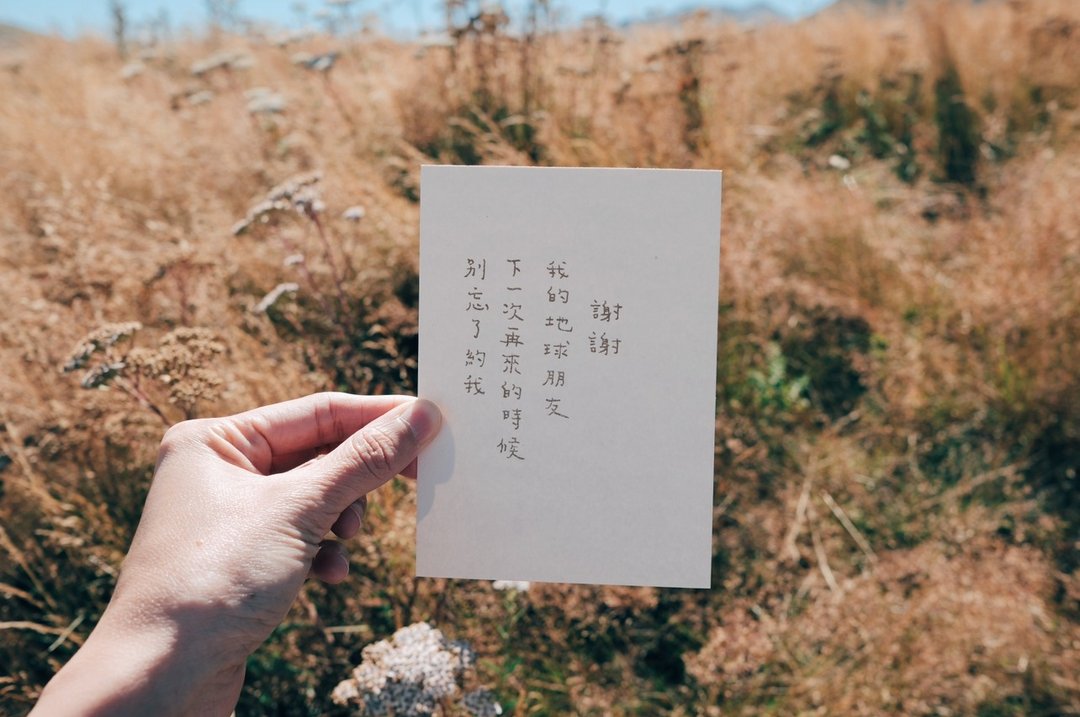 謝謝
我的地球朋友
下一次再來的時候
別忘了約我